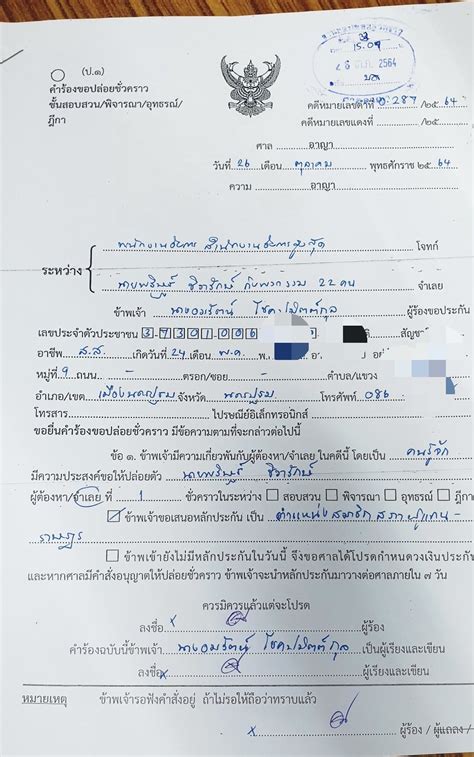 (ป.๑)
คำร้องขอปล่อยชั่วคราว
ชั้นสอบสวน/พิจารณา/อุทธรณ์/
ฎีกา
15.09
26 ต.ค. 2564
คดีหมายเลขดำที่ อ. 287 /๒๕ 64
คดีหมายเลขแดงที่ /๒๕
ศาล อาญา
วันที่ 26 เดือน ตุลาคม พุทธศักราช ๒๕ 64
ความ อาญา
พนักงานอัยการ สำนักงานอัยการสูงสุด โจทก์
ระหว่าง
นายพริษฐ์ ชิวารักษ์ กับพวกรวม 22 คน จำเลย
ข้าพเจ้า นางอมรัตน์ โชคปมิตต์กุล ผู้ร้องขอประกัน
เลขประจำตัวประชาชน 3 7301 006 สัญชา
อาชีพ ส.ส. เกิดวันที่ 24 เดือน พ.ค. พ. อา
หมู่ที่ 9 ถนน - ตรอก/ซอย - ตำบล/แขวง
อำเภอ/เขต เมืองนครปฐม จังหวัด นครปฐม โทรศัพท์ 086
โทรสาร ไปรษณีย์อิเล็กทรอนิกส์
ขอยื่นคำร้องขอปล่อยชั่วคราว มีข้อความตามที่จะกล่าวต่อไปนี้
ข้อ ๑. ข้าพเจ้ามีความเกี่ยวพันกับผู้ต้องหา/จำเลย ในคดีนี้ โดยเป็น คนรู้จัก
มีความประสงค์ขอให้ปล่อยตัว นายพริษฐ์ ชิวารักษ์
ผู้ต้องหา/จำเลย ที่ 1 ชั่วคราวในระหว่าง สอบสวน พิจารณา อุทธรณ์ ฎีกา
ข้าพเจ้าขอเสนอหลักประกัน เป็น ตำแหน่งสมาชิกสภาผู้แทน-
ราษฎร
ข้าพเจ้ายังไม่มีหลักประกันในวันนี้ จึงขอศาลได้โปรดกำหนดวงเงินประกัน
และหากศาลมีคำสั่งอนุญาตให้ปล่อยชั่วคราว ข้าพเจ้าจะนำหลักประกันมาวางต่อศาลภายใน ๗ วัน
ควรมิควรแล้วแต่จะโปรด
ลงชื่อ x ผู้ร้อง
คำร้องฉบับนี้ข้าพเจ้า นางอมรัตน์ โชคปมิตต์กุล เป็นผู้เรียงและเขียน
ลงชื่อ x ผู้เรียงและเขียน
หมายเหตุ ข้าพเจ้ารอฟังคำสั่งอยู่ ถ้าไม่รอให้ถือว่าทราบแล้ว
x ผู้ร้อง / ผู้แถลง /